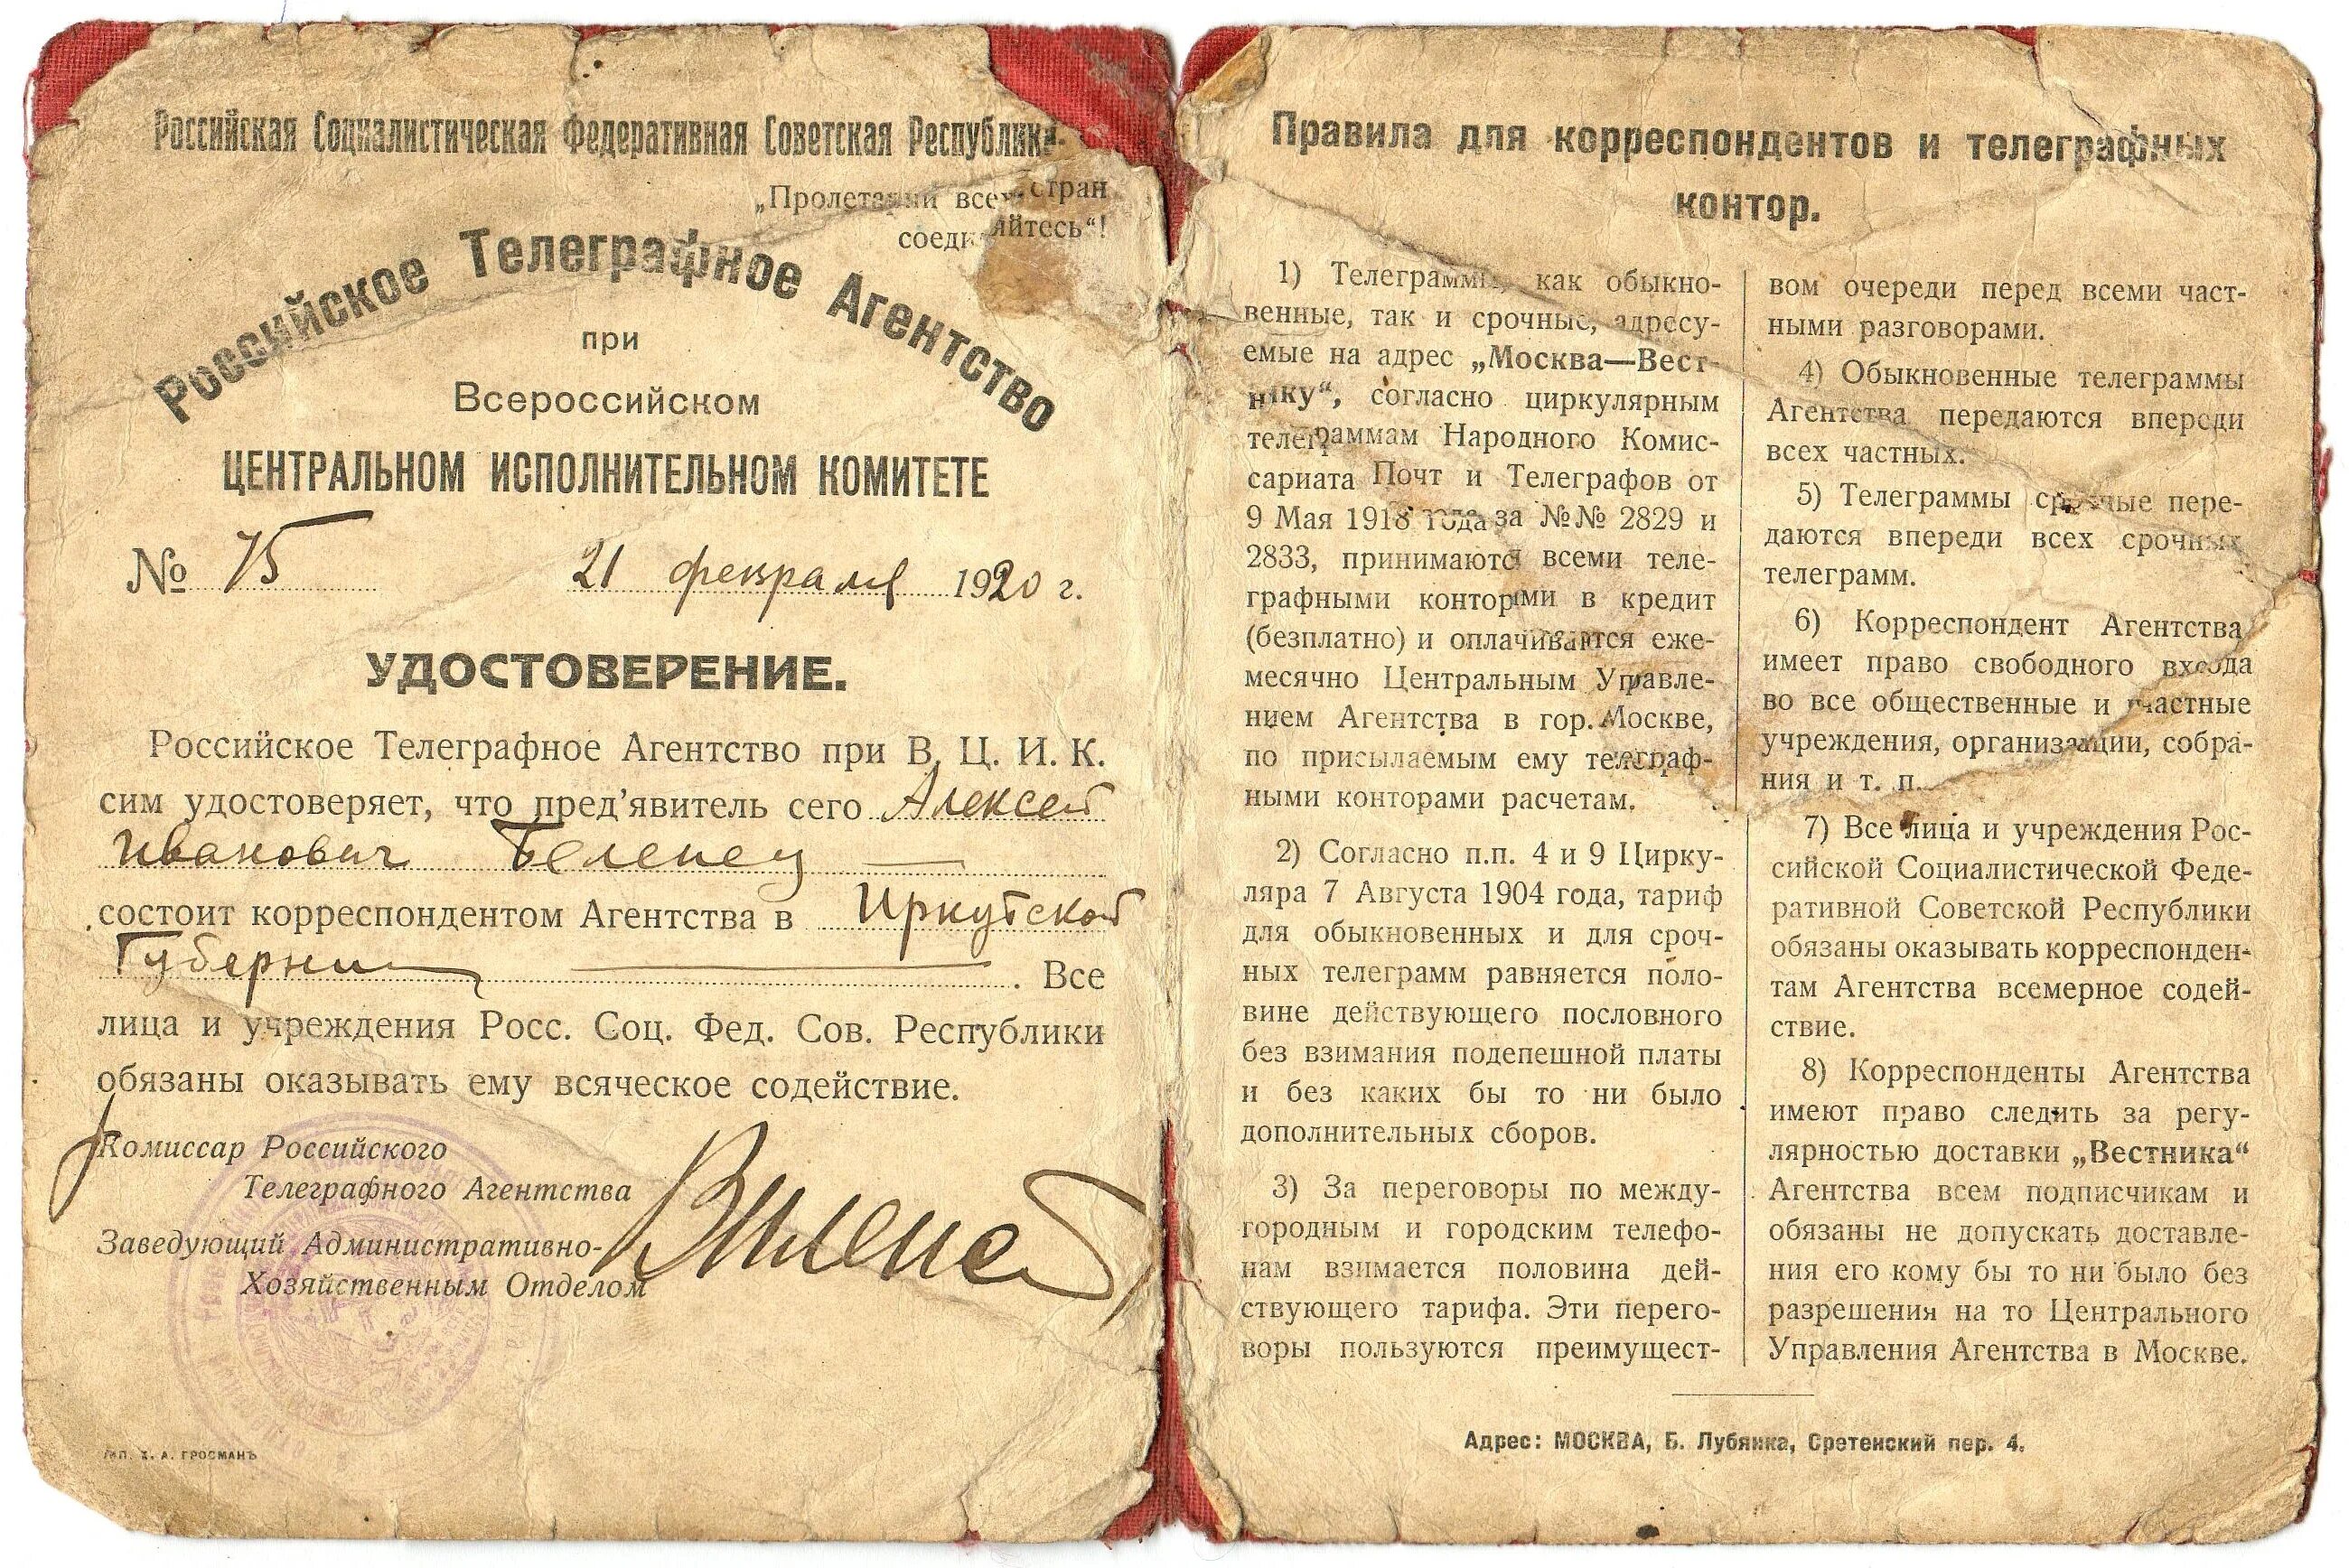 Российская Социалистическая Федеративная Советская Республика.
„Пролетарии всех стран
соединяйтесь“!
Российское Телеграфное Агентство
при
Всероссийском
ЦЕНТРАЛЬНОМ ИСПОЛНИТЕЛЬНОМ КОМИТЕТЕ
№ 75 21 февраля 1920 г.
УДОСТОВЕРЕНИЕ.
Российское Телеграфное Агентство при В. Ц. И. К.
сим удостоверяет, что пред’явитель сего Алексей
Иванович Беленец
состоит корреспондентом Агентства в Иркутской
Губернии. Все
лица и учреждения Росс. Соц. Фед. Сов. Республики
обязаны оказывать ему всяческое содействие.
Комиссар Российского
Телеграфного Агентства
Заведующий Административно-
Хозяйственным Отделом
Тип. Х. А. ГРОСМАНЪ
Правила для корреспондентов и телеграфных
контор.
1) Телеграммы, как обыкно-
венные, так и срочные, адресу-
емые на адрес „Москва—Вест-
нику“, согласно циркулярным
телеграммам Народного Комис-
сариата Почт и Телеграфов от
9 Мая 1918 года за №№ 2829 и
2833, принимаются всеми теле-
графными конторами в кредит
(безплатно) и оплачиваются еже-
месячно Центральным Управле-
нием Агентства в гор. Москве,
по присылаемым ему телеграф-
ными конторами расчетам.
2) Согласно п.п. 4 и 9 Цирку-
ляра 7 Августа 1904 года, тариф
для обыкновенных и для сроч-
ных телеграмм равняется поло-
вине действующего пословного
без взимания подепешной платы
и без каких бы то ни было
дополнительных сборов.
3) За переговоры по между-
городным и городским телефо-
нам взимается половина дей-
ствующего тарифа. Эти перего-
воры пользуются преимущест-
вом очереди перед всеми част-
ными разговорами.
4) Обыкновенные телеграммы
Агентства передаются впереди
всех частных.
5) Телеграммы срочные пере-
даются впереди всех срочных
телеграмм.
6) Корреспондент Агентства
имеет право свободного входа
во все общественные и частные
учреждения, организации, собра-
ния и т. п.
7) Все лица и учреждения Рос-
сийской Социалистической Феде-
ративной Советской Республики
обязаны оказывать корреспонден-
там Агентства всемерное содей-
ствие.
8) Корреспонденты Агентства
имеют право следить за регу-
лярностью доставки „Вестника“
Агентства всем подписчикам и
обязаны не допускать доставле-
ния его кому бы то ни было без
разрешения на то Центрального
Управления Агентства в Москве.
Адрес: МОСКВА, Б. Лубянка, Сретенский пер. 4.